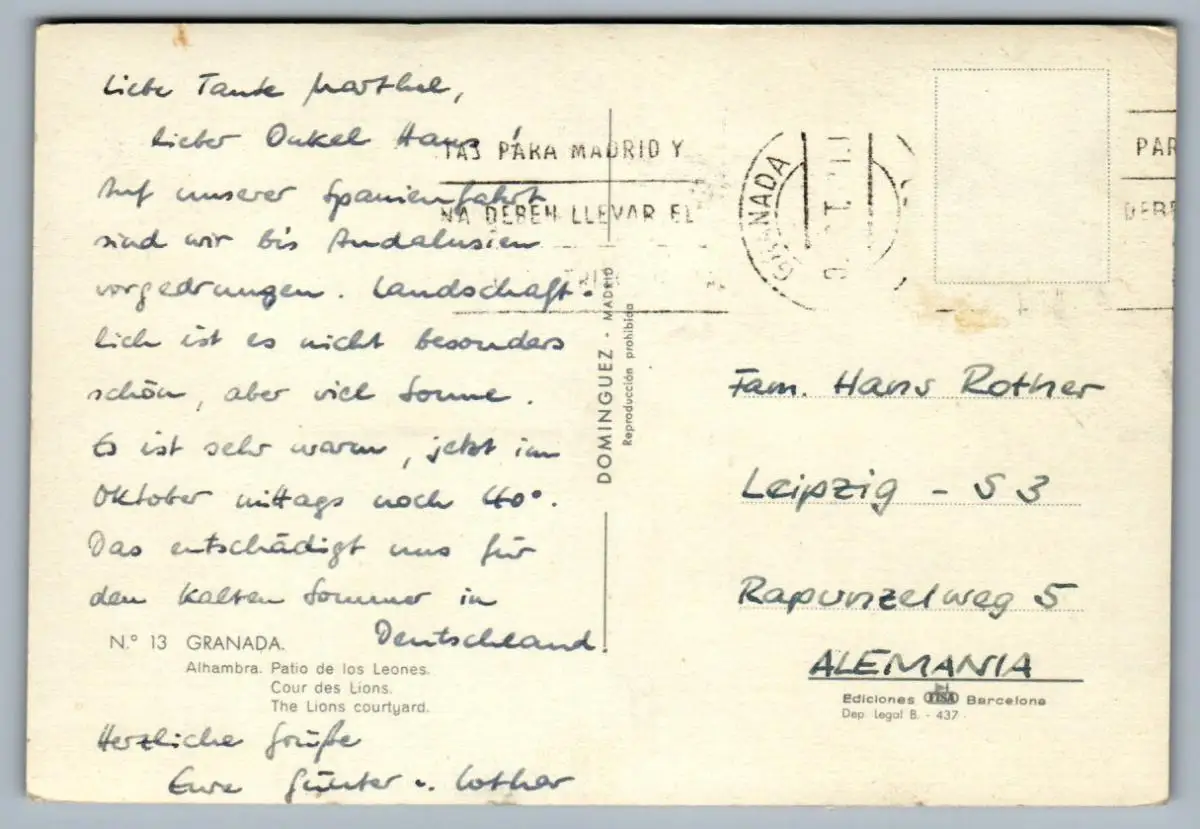 Liebe Tante Marthel,
lieber Onkel Hans!
Auf unserer Spanienfahrt
sind wir bis Andalusien
vorgedrungen. Landschaft-
lich ist es nicht besonders
schön, aber viel Sonne.
Es ist sehr warm, jetzt im
Oktober mittags noch 40°.
Das entschädigt uns für
den kalten Sommer in
Deutschland.
N.° 13 GRANADA.
Alhambra. Patio de los Leones.
Cour des Lions.
The Lions courtyard.
Herzliche Grüße
Eure Günter u. Lothar
TAS PARA MADRID Y
NA DEBEN LLEVAR EL
GRANADA
PAR
DEBE
DOMINGUEZ - MADRID
Reproducción prohibida
Fam. Hans Rother
Leipzig - S 3
Rapunzelweg 5
ALEMANIA
Ediciones FISA Barcelona
Dep. Legal B. - 437